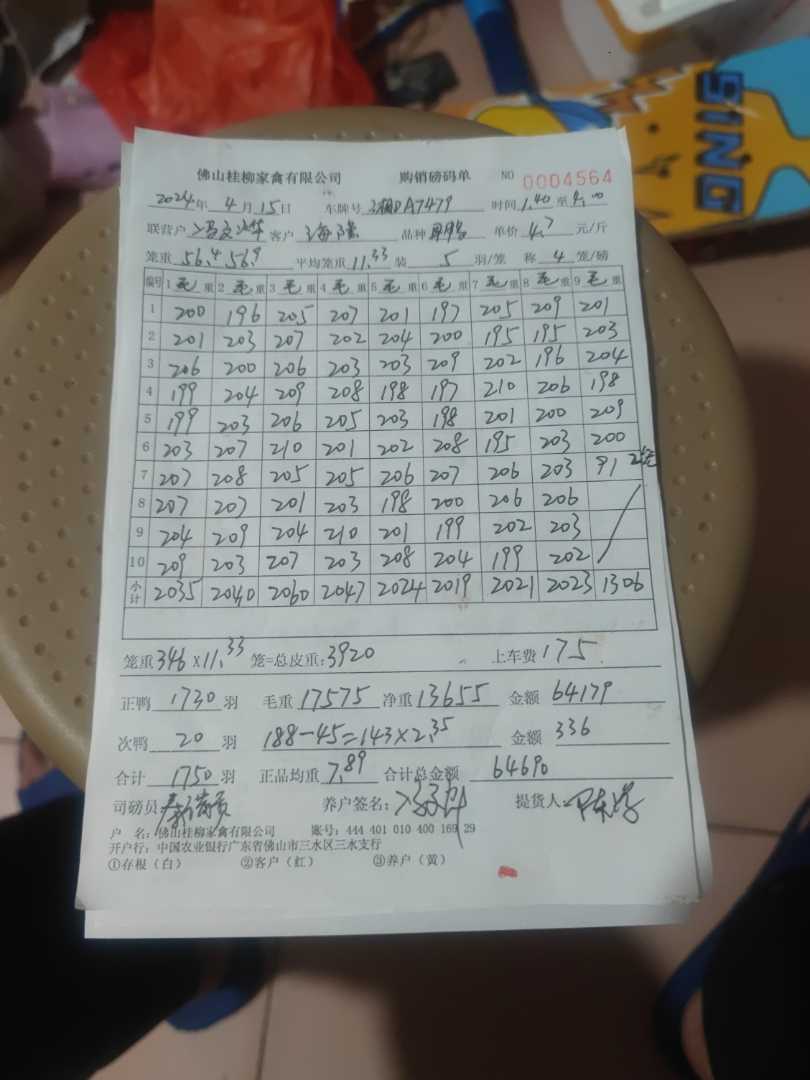 SING
佛山桂柳家禽有限公司 购销磅码单 NO 0004564
2024年 4 月 15日 车牌号 A7479 时间 1.40 至
联营户 客户 海隆 品种 单价 4.7 元/斤
笼重 56.4 56.9 平均笼重 11.33 装 5 羽/笼 称 4 笼/磅
编号 1 毛 重 2 毛 重 3 毛 重 4 毛 重 5 毛 重 6 毛 重 7 毛 重 8 毛 重 9 毛 重
1 200 196 205 207 201 197 205 209 201
2 201 203 207 202 204 200 195 195 203
3 206 200 206 203 203 209 202 196 204
4 199 204 209 208 198 197 210 206 198
5 199 203 206 205 203 198 201 200 209
6 203 207 210 201 202 208 195 203 200
7 207 208 205 205 206 207 206 203 91 2笼
8 207 207 201 203 198 200 206 206
9 204 209 204 210 201 199 202 203
10 209 203 207 203 208 204 199 202
小计 2035 2040 2060 2047 2024 2019 2021 2023 1306
笼重 346 × 11.33 笼=总皮重: 3920 上车费 175
正鸭 1730 羽 毛重 17575 净重 13655 金额 64179
次鸭 20 羽 188-45=143×2.35 金额 336
合计 1750 羽 正品均重 7.89 合计总金额 64690
司磅员 养户签名: 提货人
户 名: 佛山桂柳家禽有限公司 账号: 444 401 010 400 169 29
开户行: 中国农业银行广东省佛山市三水区三水支行
①存根(白) ②客户(红) ③养户(黄)